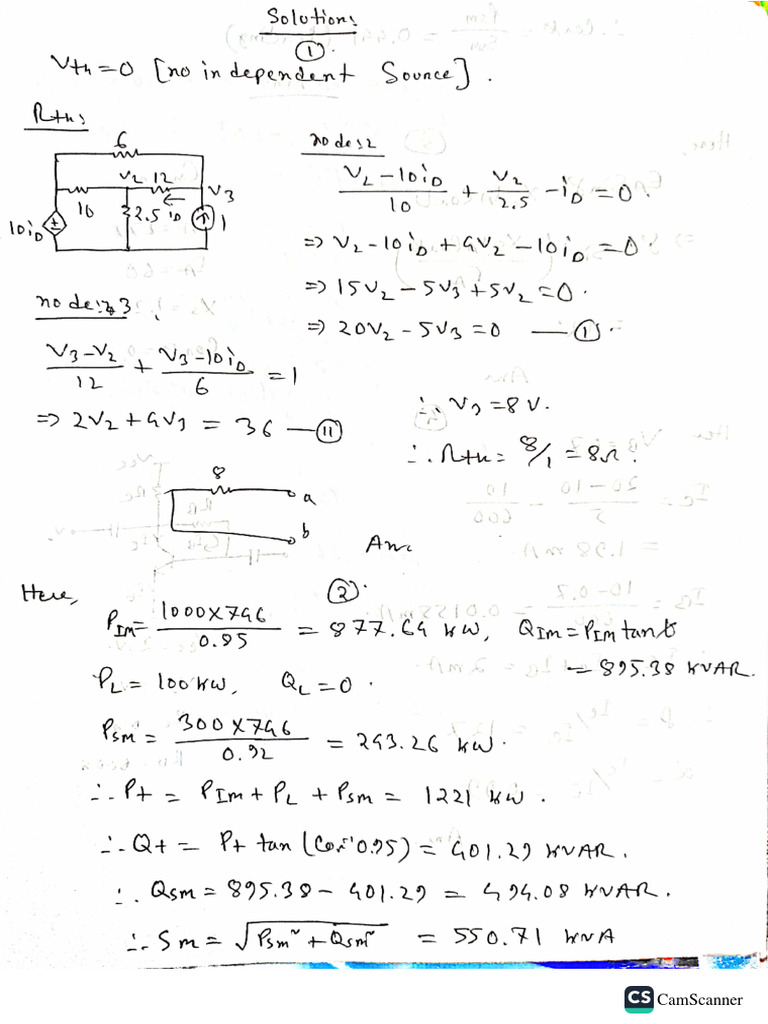 Solution:
①
Vth=0 [no independent Source].
Rth:
6
V2 12 V3
10 2.5 iD 1
10iD
node:2
V2-10iD/10 + V2/2.5 - iD = 0.
=> V2-10iD+4V2-10iD=0.
=> 15V2-5V3+5V2=0.
=> 20V2-5V3=0 —①.
node:3
V3-V2/12 + V3-10iD/6 = 1
=> 2V2+4V3 = 36 —⑪
∴ V3=8V.
∴ Rth= 8/1 =8Ω.
8
a
b
Ans
②.
Here,
PIm= 1000X746/0.85 = 877.64 kW, QIm=PIm tanθ
= 895.38 KVAR.
PL= 100kW, QL=0.
Psm= 300X746/0.92 = 243.26 kW.
∴ Pt = PIm+PL+Psm= 1221 kW.
∴ Qt = Pt tan(Cos⁻¹0.95)=401.29 KVAR.
∴ Qsm=895.38-401.29 = 494.08 KVAR.
∴ Sm=√Psm²+Qsm² = 550.71 kVA
CS CamScanner